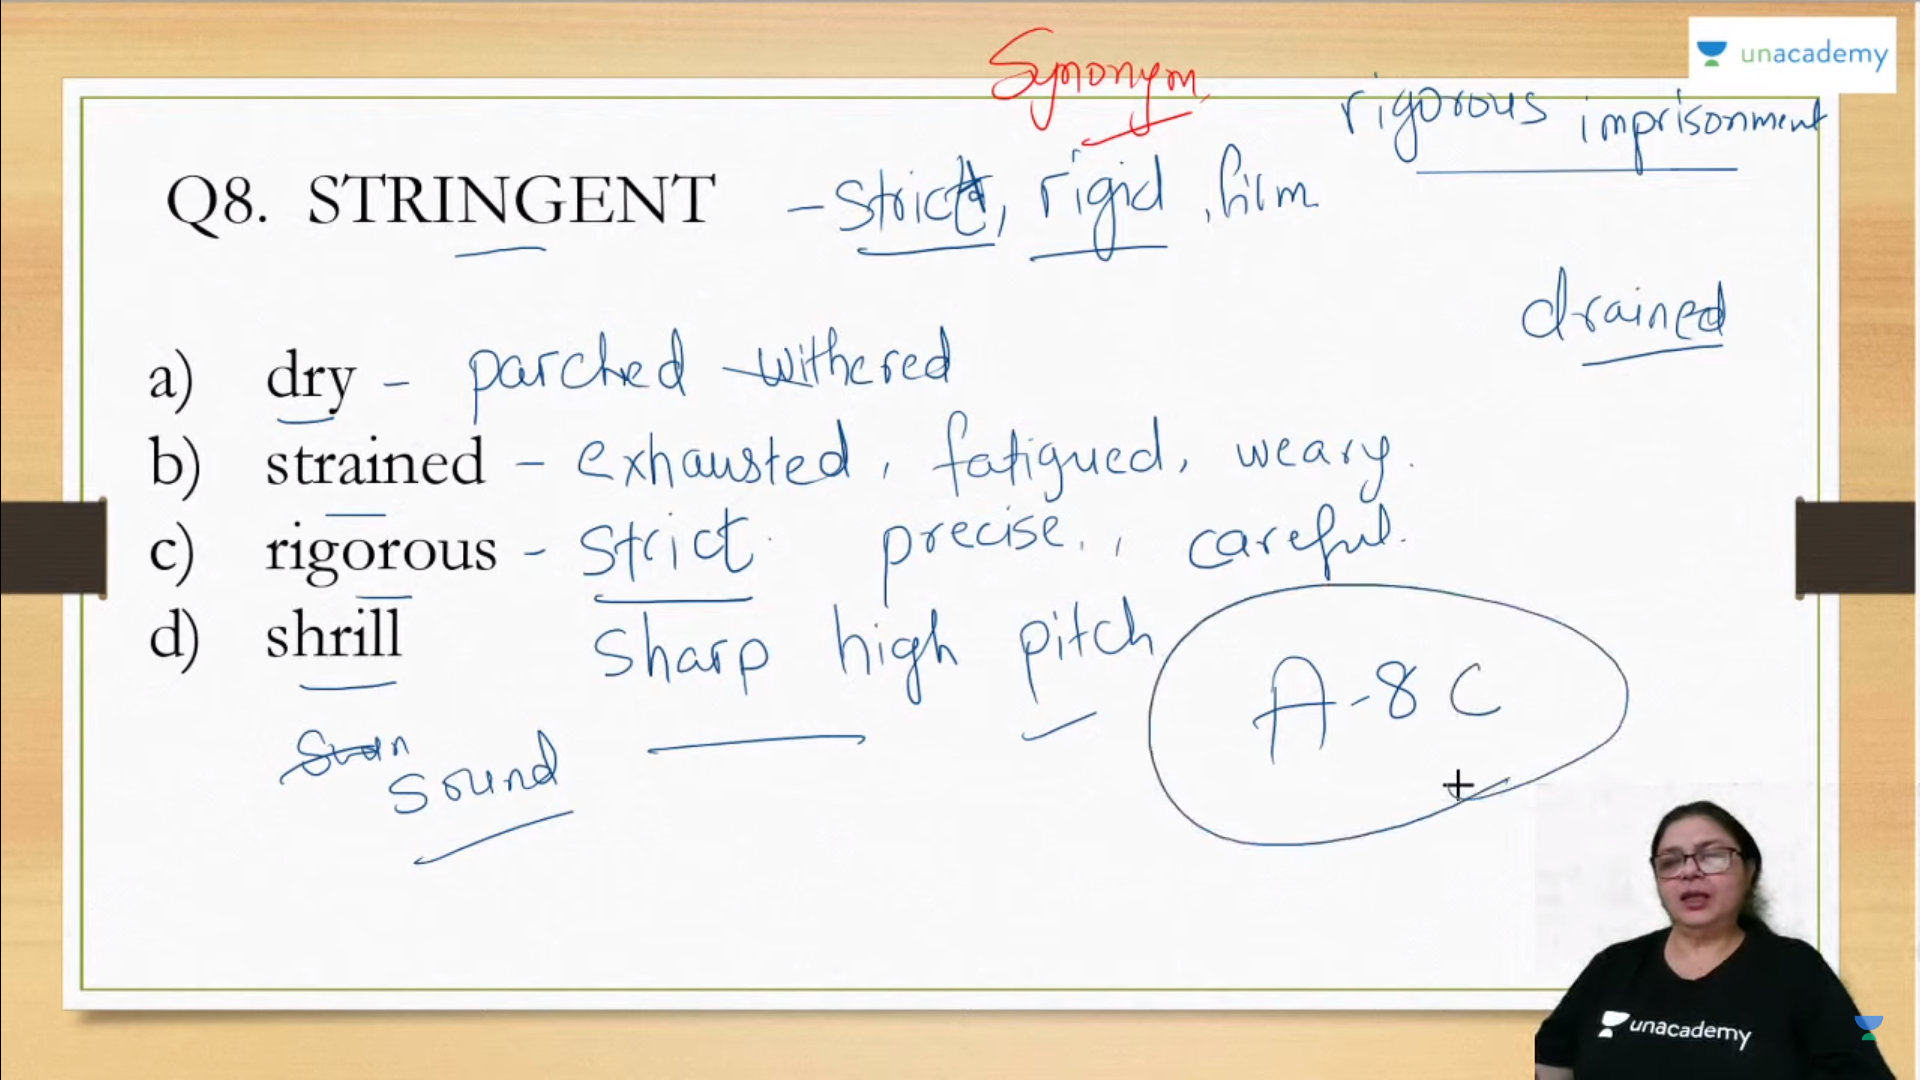 unacademy
Synonym
rigorous imprisonment
Q8. STRINGENT - strict, rigid, firm
drained
a) dry - parched withered
b) strained - exhausted, fatigued, weary.
c) rigorous - strict precise, careful.
d) shrill sharp high pitch
sound
A-8 C
unacademy